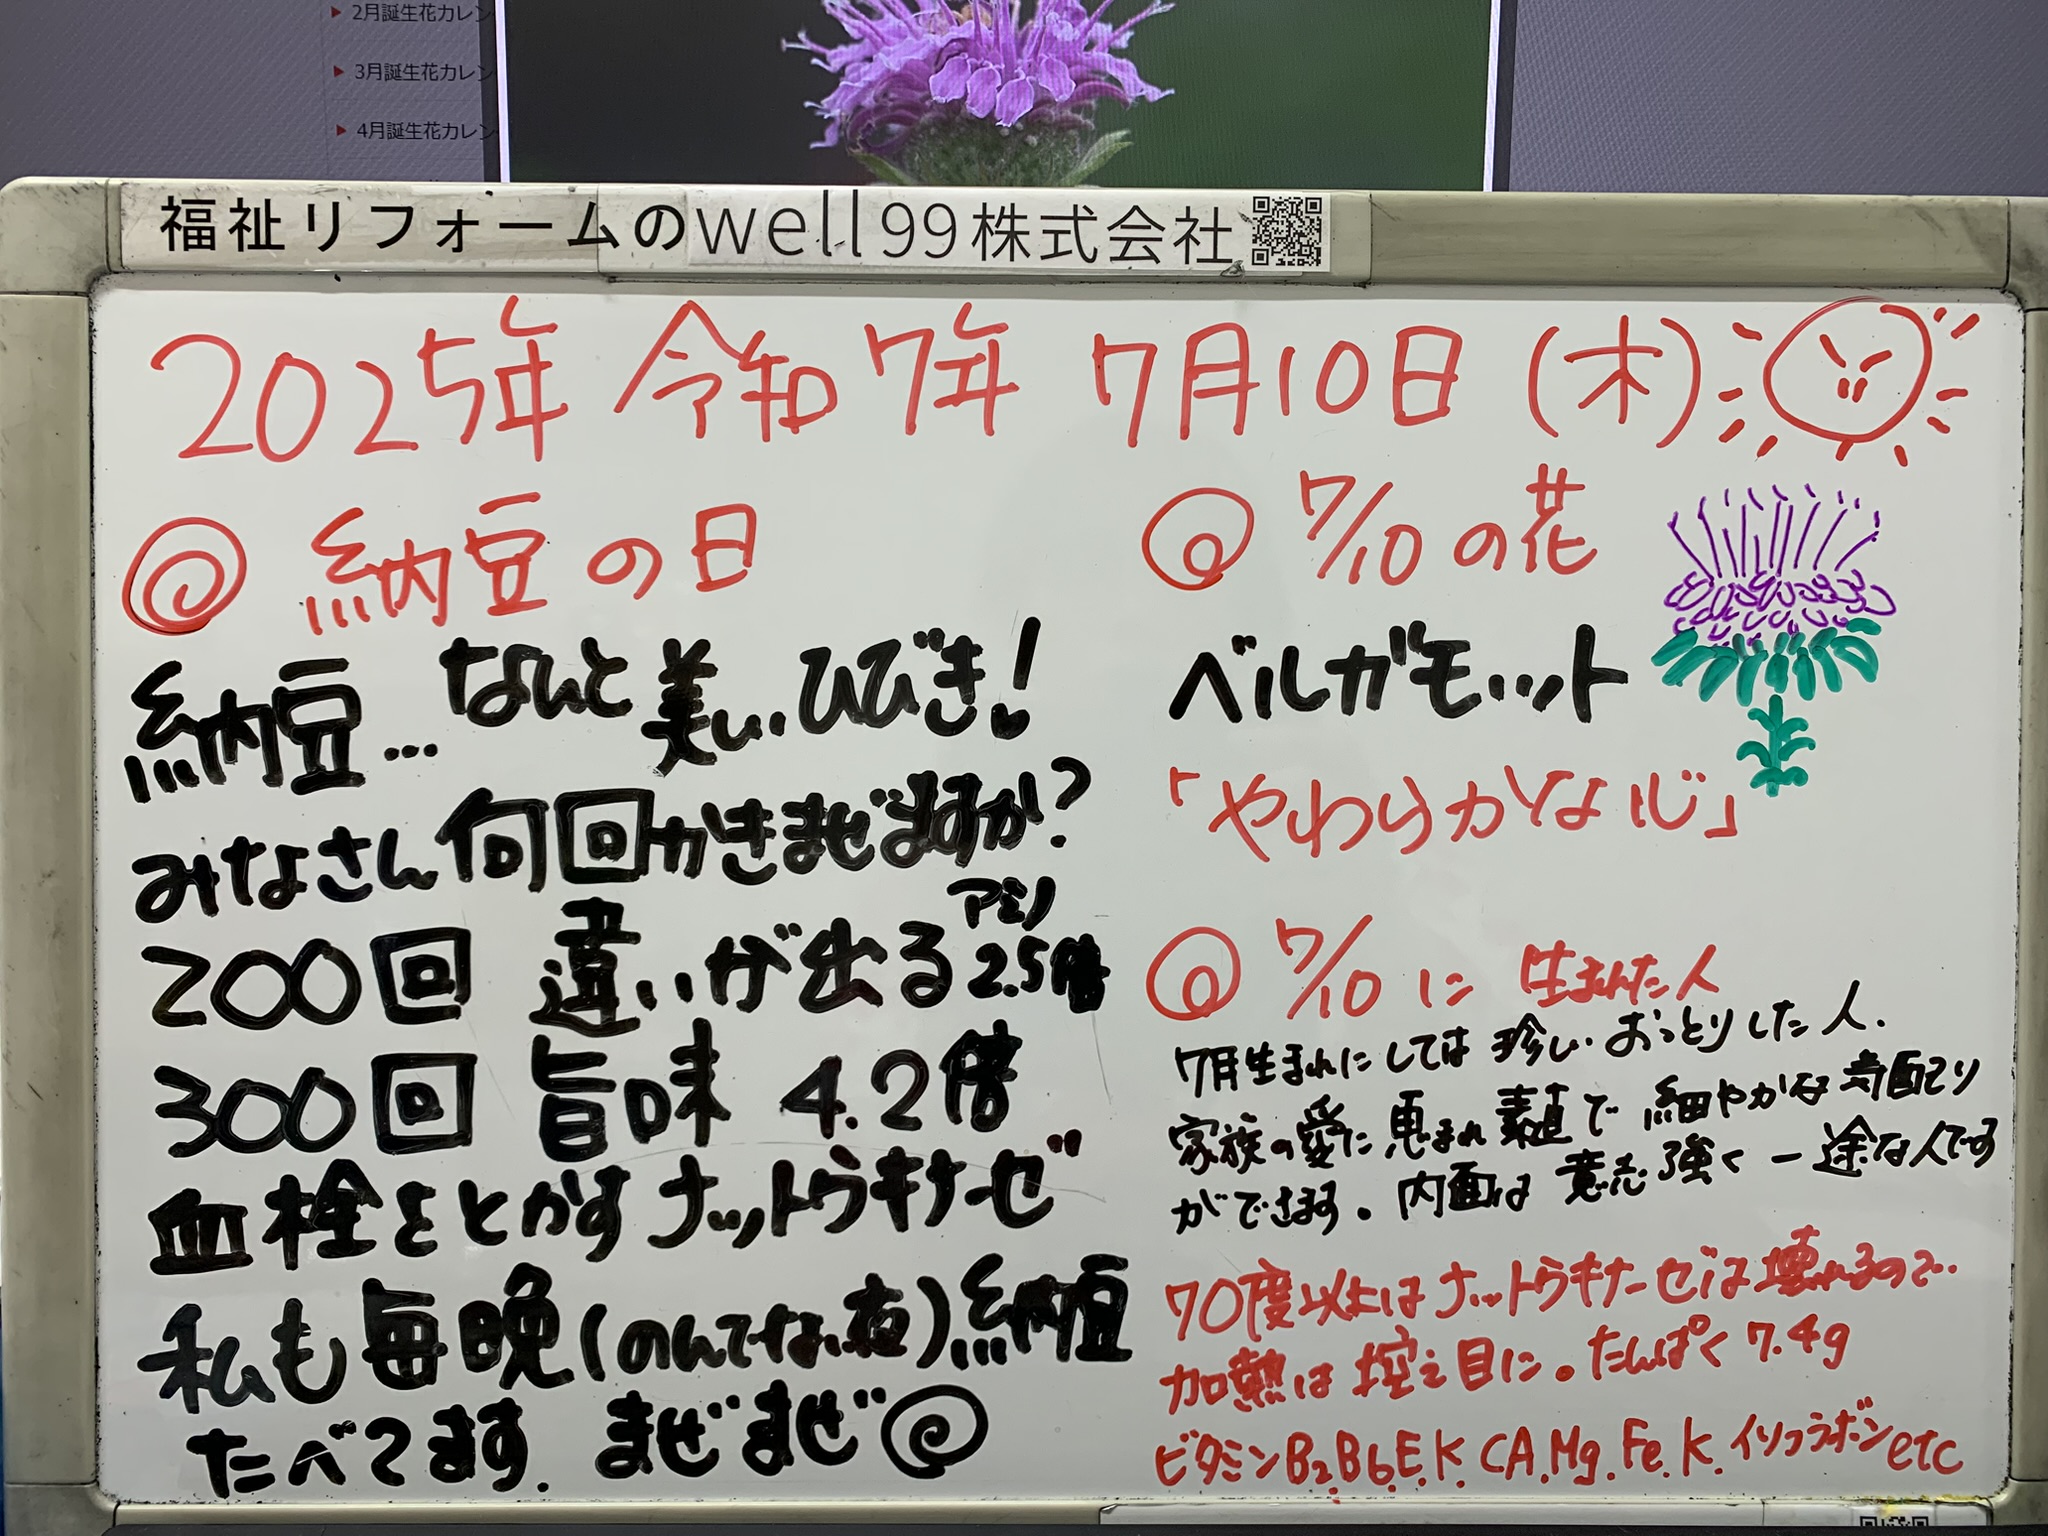 2月誕生花カレン
3月誕生花カレン
4月誕生花カレン
福祉リフォームのwell99株式会社
2025年 令和7年 7月10日(木)
納豆の日
納豆…なんと美しいひびき!
みなさん何回かきまぜますか?
200回 違いが出る アミノ 2.5倍
300回 旨味 4.2倍
血栓をとかすナットウキナーゼ
私も毎晩(のんでない夜)納豆
たべてます. まぜまぜ
7/10の花
ベルガモット
「やわらかな心」
7/10に 生まれた人
7月生まれにしては珍しいおっとりした人.
家族の愛に恵まれ素直で細やかな気配り
ができます。内面は意志強く一途な人です
70度以上はナットウキナーゼは壊れるので
加熱は控え目に。たんぱく7.4g
ビタミンB2.B6.E.K.CA.Mg.Fe.K.イソフラボンetc